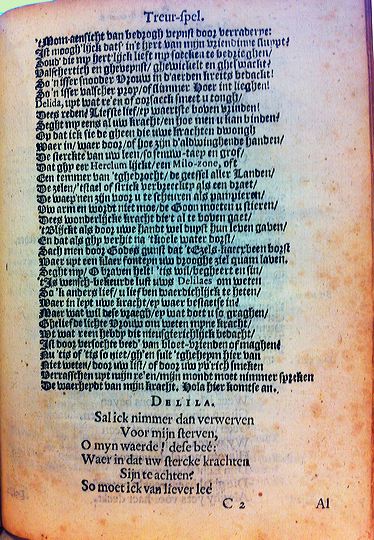 Treur-spel.
't Mom-aensicht van bedrogh veynst door verraderye:
Ist mooghlijck dats in't hert van mijn vriendinne sluypt?
Soud' die my hert'lijck lieft my soecken te bedrieghen/
Valscherticheyt en gheveynst/ ghewickelt en ghelwackt/
So'n isser snooder Vrouw in d'aerden kreits bedacht!
So'n isser valscher prop/ of slimmer Hoer int lieghen/
Delida, upt wat re'en of oorsaeck smeet u tongh/
Dees reden? Liefste lief/ ey waerste boven vrinden!
Seght my eens al uw' kracht/ en hoe men u kan binden?
Op dat ick sie de gheen die uwe krachten dwongh
Waer in/ waer door/ of hoe zijn d'aldwinghende handen/
De sterckte van uw leen/ so senuw-taey en grof/
Dat ghy eer Herclum lijckt/ een Milo-zone, oft
Een temmer van 'tghedrocht/ de geessel aller Landen/
De zelen/ 'tstael of strick verbreecklijck als een draet/
De wape'nen zijn voor u te scheuren als pampieren/
Uw arm en wordt niet moe/ de Goon moeten u stieren/
Dees wonderlijcke kracht die'r al te boven gaet/
't Blijckt als door uwe handt wel duyst hun leven gaven/
En dat als ghy verhit na 'tkoele water dorst/
Sach men door Godes gunst dat 't Ezels-kaeckbeen borst
Waer upt een klaer fonteyn uw drooghe ziel quam laven.
Seght my/ O braven helt! 'tis wil/ begheert en sin/
'tIs wensch-bekeurde lust uws Delilaes om weten
So'k anders lief/ u lief ben waerdichlijck te heten/
Waer in leyt uwe kracht/ ey waer bestaetse in?
Maer wat wil dese vraegh/ ey wat doet u so graghen/
Gheliefde lichte Vrouw om weten myne kracht/
Wt wat reen hebdy die nieusgierichlijck bedacht/
Ist door versochte bred' van bloet-vrienden of maghen?
Nu 'tis of 'tis so niet/ gh'en sult 'tgheheym hier van
Niet weten/ door uw list/ of door uw vy'rich smeken
Verrasschen upt mijn re'en/ mijn mondt moet nimmer spreken
De waerheydt van mijn kracht. Hola hier komtse an.
DELILA.
Sal ick nimmer dan verwerven
Voor mijn sterven,
O myn waerde! dese beê:
Waer in dat uw stercke krachten
Sijn te achten?
So moet ick van liever leê
C 2 Al